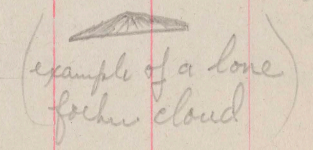 (example of a lone
foehn cloud)